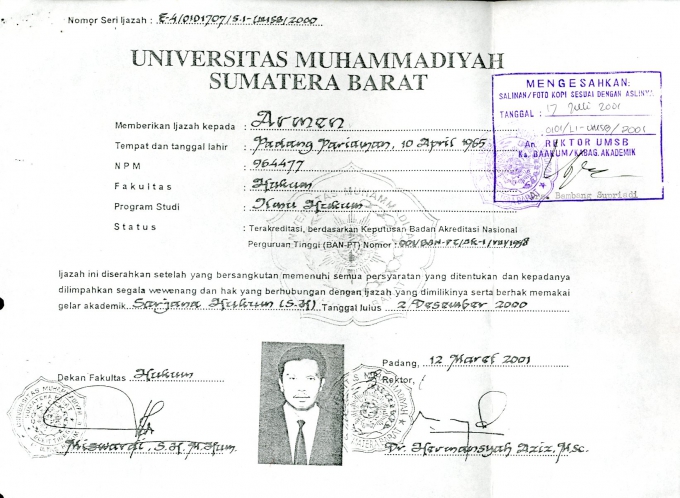 Nomor Seri Ijazah : E-4/0101707/S.1-UMSB/2000
UNIVERSITAS MUHAMMADIYAH
SUMATERA BARAT
MENGESAHKAN:
SALINAN/FOTO KOPI SESUAI DENGAN ASLINYA
TANGGAL : 17 Juli 2001
0101/L1-UMSB/2001
An. REKTOR UMSB
Ka. BAAKUM/KABAG. AKADEMIK
Bambang Supriadi
Memberikan Ijazah kepada : Armen
Tempat dan tanggal lahir : Padang Pariaman, 10 April 1965
N P M : 964477
F a k u l t a s : Hukum
Program Studi : Ilmu Hukum
S t a t u s : Terakreditasi, berdasarkan Keputusan Badan Akreditasi Nasional
Perguruan Tinggi (BAN-PT) Nomor :
Ijazah ini diserahkan setelah yang bersangkutan memenuhi semua persyaratan yang ditentukan dan kepadanya
dilimpahkan segala wewenang dan hak yang berhubungan dengan Ijazah yang dimilikinya serta berhak memakai
gelar akademik Sarjana Hukum (S.H) Tanggal lulus 2 Desember 2000
Padang, 12 Maret 2001
Dekan Fakultas Hukum
Rektor,
Miswardi, S.H, M.Hum.
Dr. Hermansyah Aziz, M.Sc.